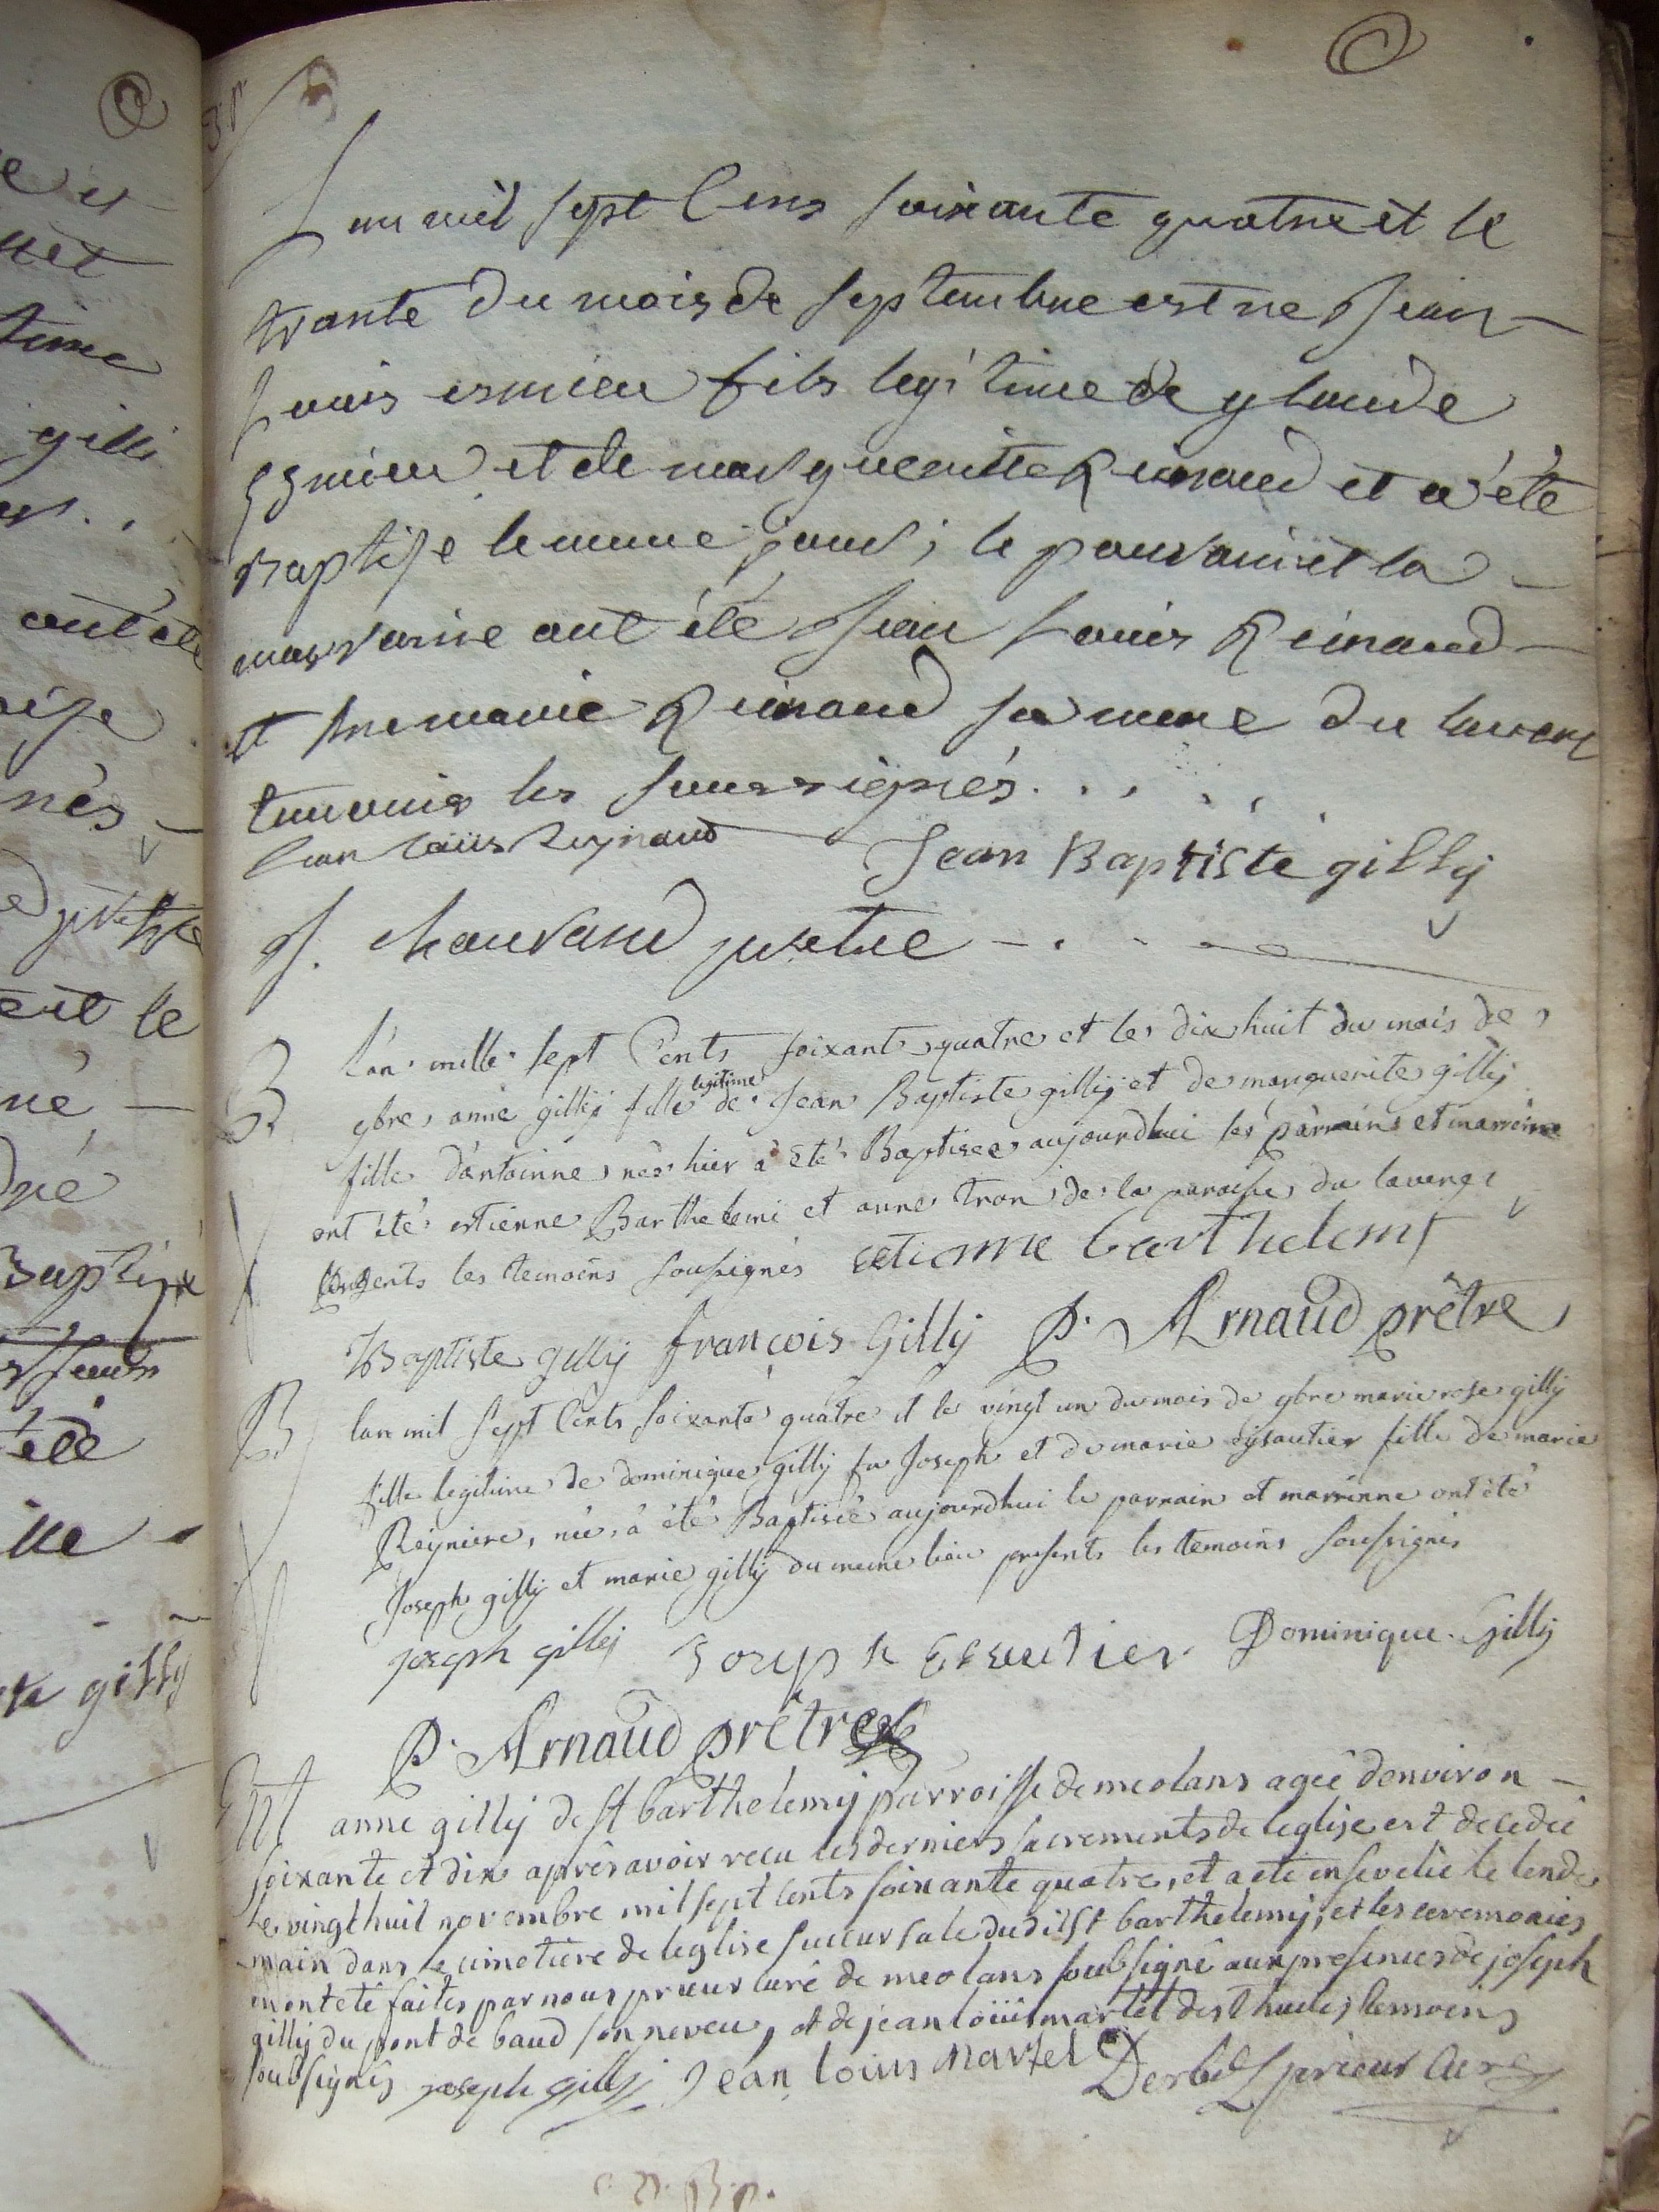 L an mil sept Cens soixante quatre et le
trante du mois de septembre est ne Jean
Louis esmieu fils legitime de glaude
Esmieu et de margueritte Reinaud et a été
Baptise le meme jour, le parrain et la
marraine ont été Jean Louis Reinaud
et Anne marie Reinaud sa mere du laverq
temoins les soussignés . . . . . .
Jean Louis Reynaud Jean Baptiste gilly
J. chauvand pretre
B lan mille sept Cents soixante quatre et le dix huit du mois de
9bre anne gilly fille legitime de Jean Baptiste gilly et de marguerite gilly
fille dantoinne née hier à été Baptisee aujourdhui les parrains et marreine
ont été estienne Barthelemi et anne tron de la paroisse du laverq
presents les temoins sousignés etienne barthelemy
JBaptiste gilly françois Gilly P. Arnaud prêtre
B lan mil sept Cents soixante quatre et le vingt un du mois de 9bre marie rose gilly
fille legitime de dominique gilly fu Joseph et de marie eysautier fille de marie
Reyniere, née, à été Baptisée aujourdhui le parrain et marrinne ont été
Joseph gilly et marie gilly du meme lieu presents les temoins soussignés
joseph gilly Joseph Esautier Dominique Gilly
P. Arnaud prêtre
anne gilly de St barthelemy parroisse de meolans agée denviron
soixante et dix aprés avoir recu les derniers sacrements de leglise est decedée
le vingt huit novembre mil sept cents soixante quatre, et a eté ensevelie le lende
main dans le cimetiere de leglise succursale dudit St barthelemy, et les ceremonies
en ont eté faites par nous prieur curé de meolans soubsigné aux presences de joseph
gilly du pont de baud son neveu, et de jean loüis martel des thuiles temoins
soubsignés joseph gilly Jean louis Martel Derbés prieur Curé